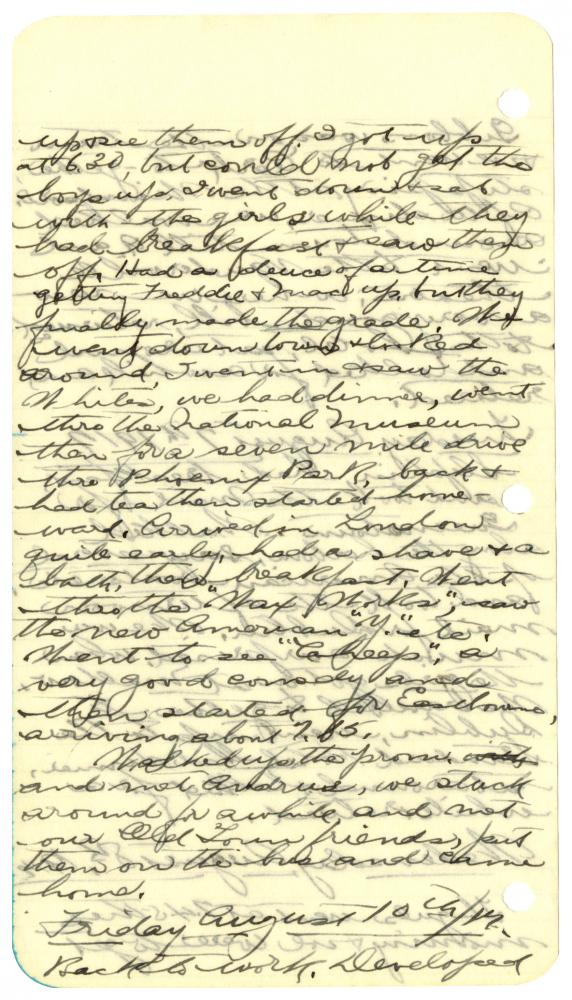 up & see them off. I got up
at 6.30, but could not get the
boys up. I went down & sat
with the girls while they
had breakfast & saw them
off. Had a deuce of a time
getting Freddie & Mac up, but they
finally made the grade. We
went down town & looked
around, I went in & saw the
Whites, we had dinner, went
thro the National Museum
then for a seven mile drive
thro Phoenix Park, back &
had tea then started home-
ward. Arrived in London
quite early, had a shave & a
bath, then breakfast. Went
thro the "Wax Works", saw
the new American "Y." etc.
Went to see "Carl Peeps", a
very good comedy and
then started for Eastbourne,
arriving about 7.15.
Walked up the prom.
and met Andrus, we stuck
around for awhile, and met
our Old Town friends, put
them on the bus and came
home.
Friday August 10th/17.
Back to work. Developed